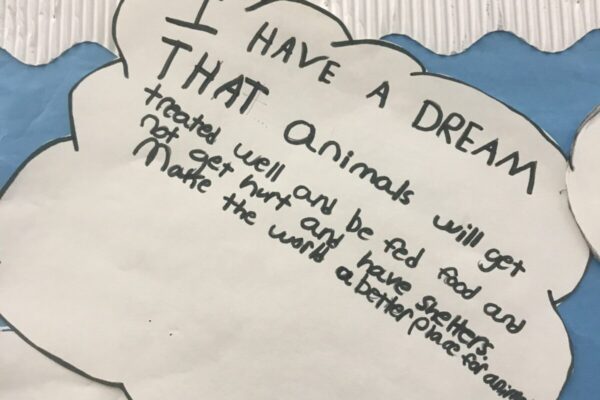 I HAVE A DREAM
THAT animals will get
treated well and be fed food and
not get hurt and have shelters.
Make the world a better place for